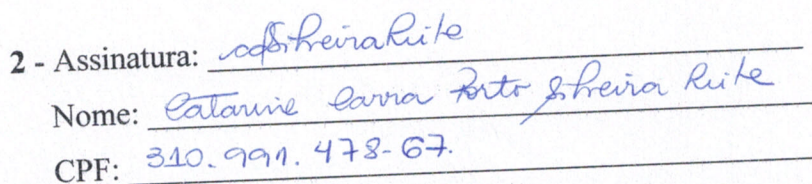 2 - Assinatura: CSilveiraLeite
Nome: Catarine Carra Porto Silveira Leite
CPF: 310.991.478-67.